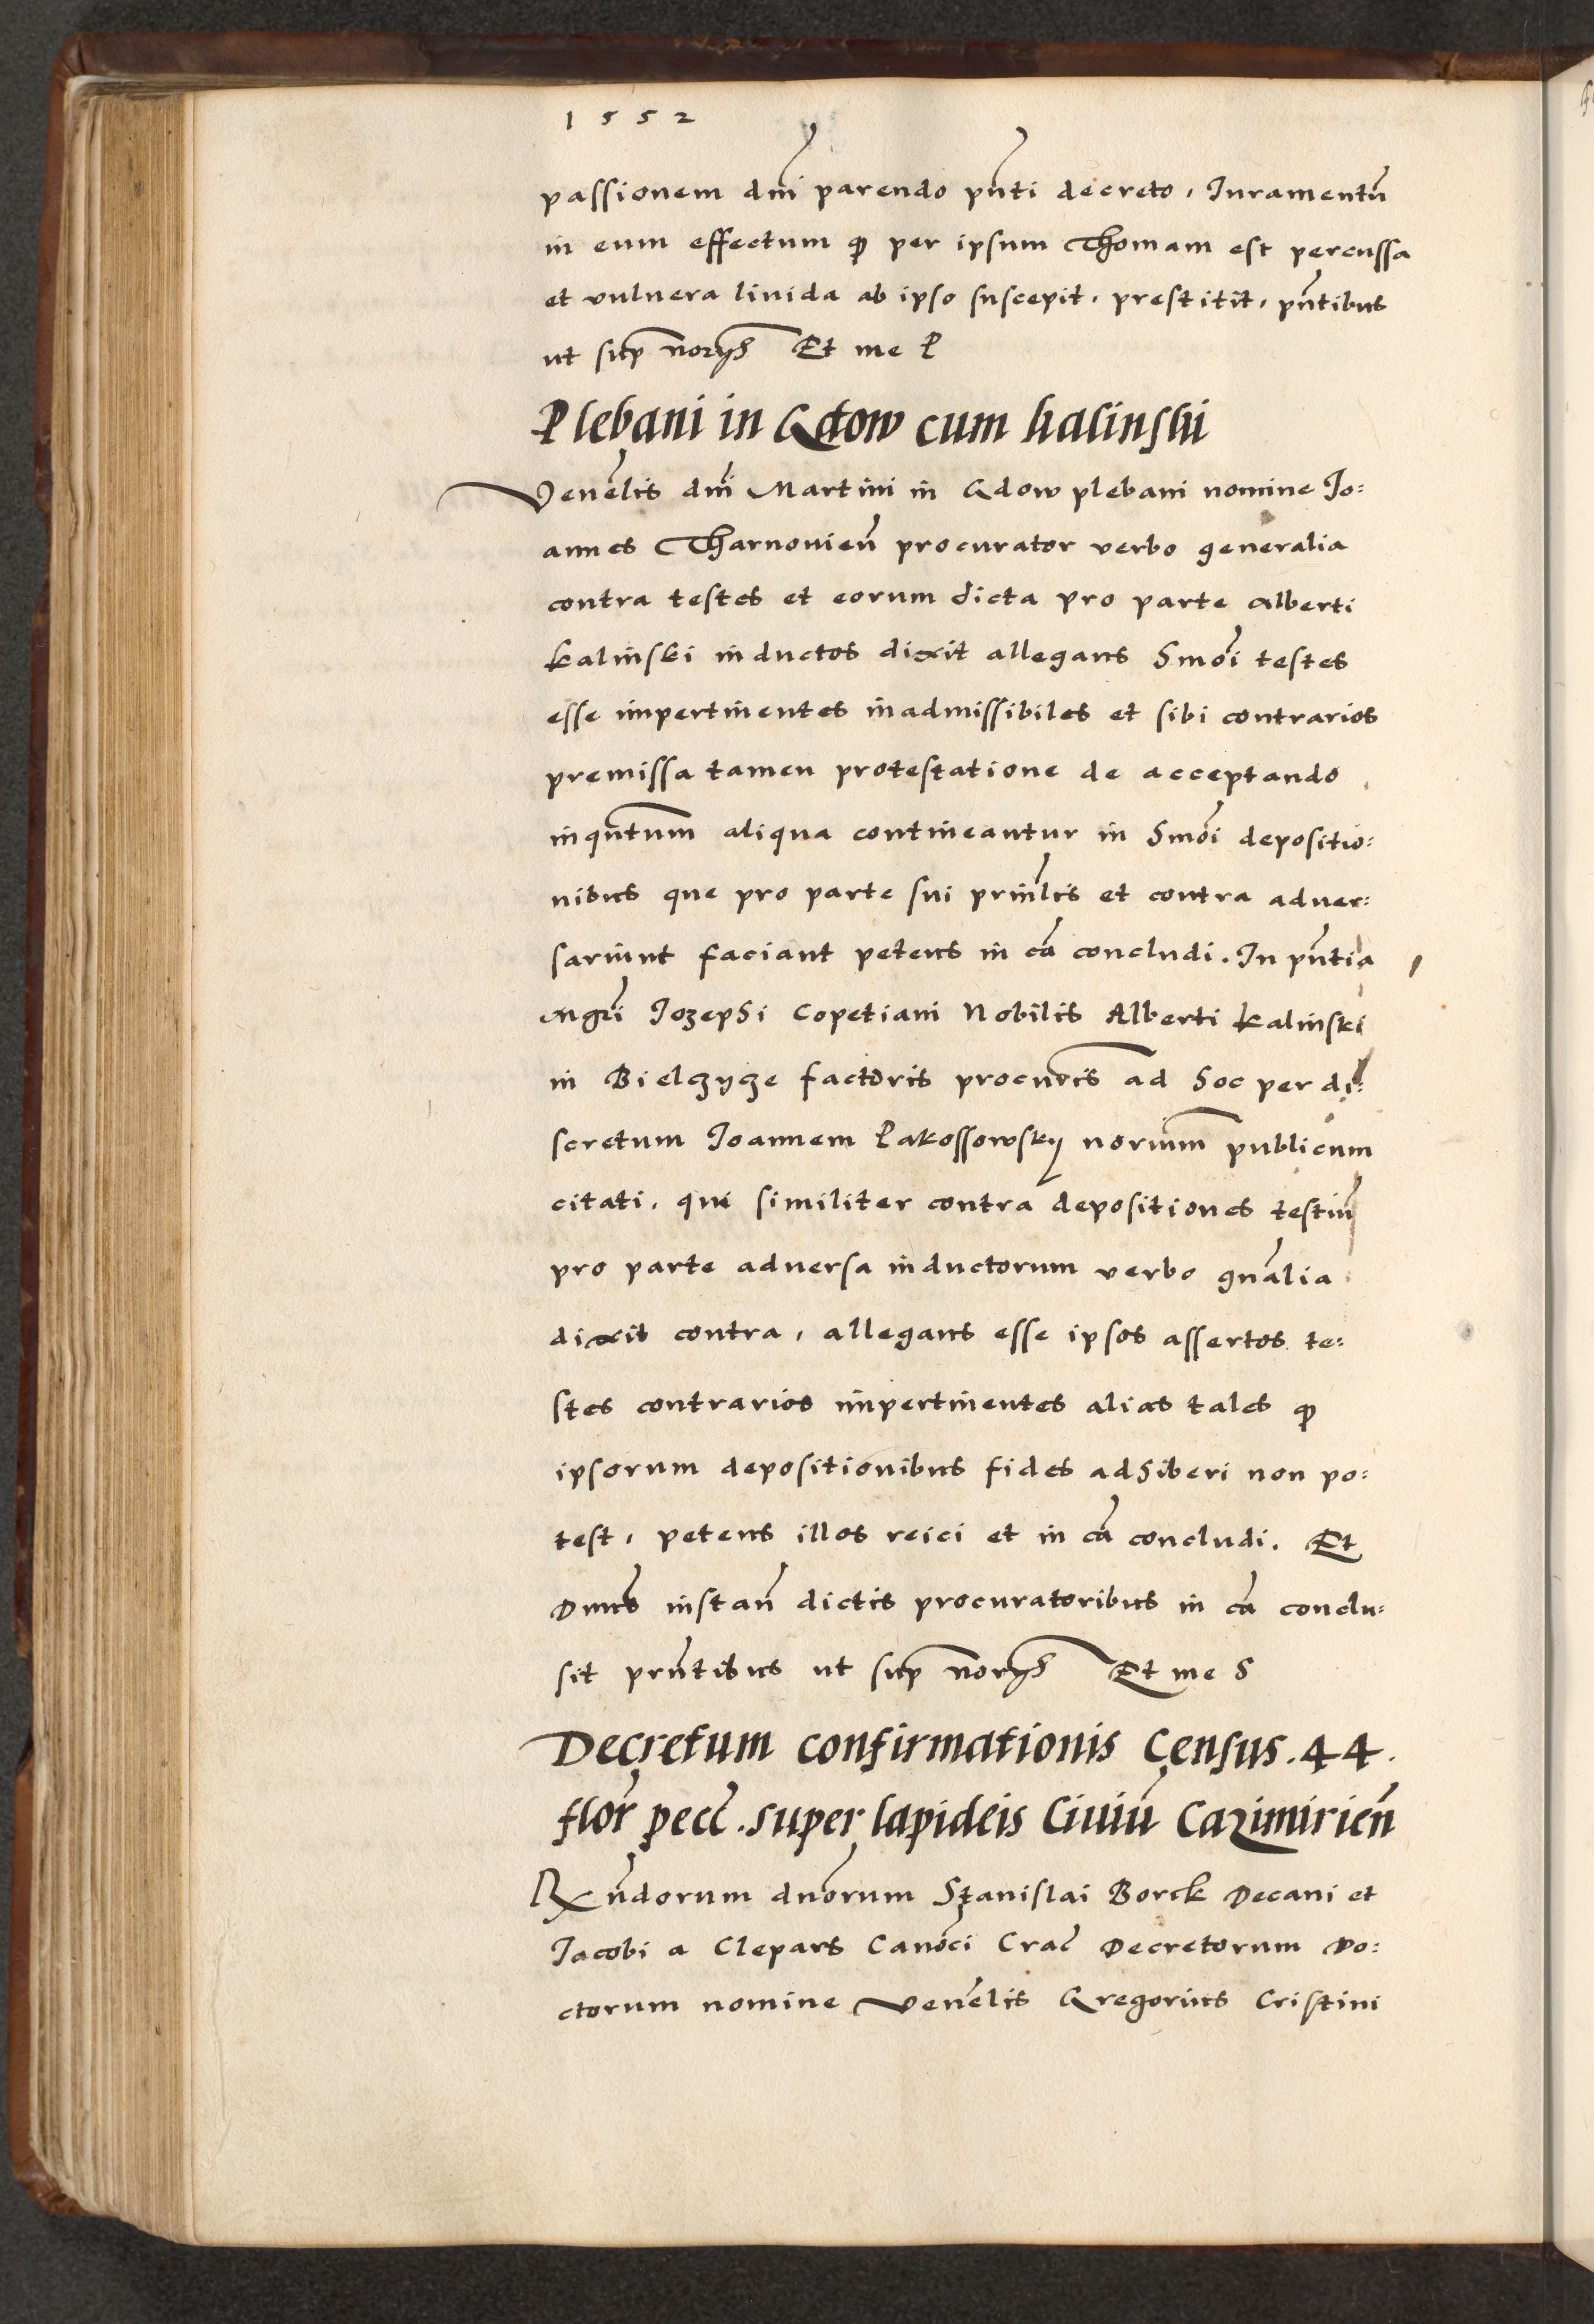 1552
passionem dnī parendo pn̄ti decreto, Iuramentū
in eum effectum ꝙ per ipsum Thomam est percussa
et vulnera liuida ab ipso suscepit, prestitit, pn̄tibus
ut sup̄ norijs Et me P
Plebani in Gdow cum kalinski
Venēlis dnī Martini in Gdow plebani nomine Io:
annes Tharnouien̄ procurator verbo generalia
contra testes et eorum dicta pro parte Alberti
kalinski inductos dixit allegans hmōi testes
esse impertinentes inadmissibiles et sibi contrarios
premissa tamen protestatione de acceptando
inqn̄tum aliqua contineantur in hmōi depositio:
nibus que pro parte sui prin̄lis et contra aduer:
sarium faciant petens in cā concludi. In pn̄tia
Mgrī Iozephi Copetiani Nobilis Alberti kalinski
in Bielczycze factoris procu̅ris ad hoc per di:
scretum Ioannem Rakossowsky noriūm publicum
citati, qui similiter contra depositiones testiū
pro parte aduersa inductorum verbo gn̄alia
dixit contra, allegans esse ipsos assertos te:
stes contrarios impertinentes alias tales ꝙ
ipsorum depositionibus fides adhiberi non po:
test, petens illos reici et in cā concludi. Et
Dnūs instan̄ dictis procuratoribus in cā conclu:
sit prn̄tibus ut sup̄ norijs Et me S
Decretum confirmationis Census .44.
flor̄ pecc̄. super lapideis Ciuiū Cazimirien̄
Rn̄dorum dnōrum Stanislai Borck Decani et
Iacobi a Clepars Canōci Crac̄ Decretorum Do:
ctorum nomine Venēlis Gregorius Cristini